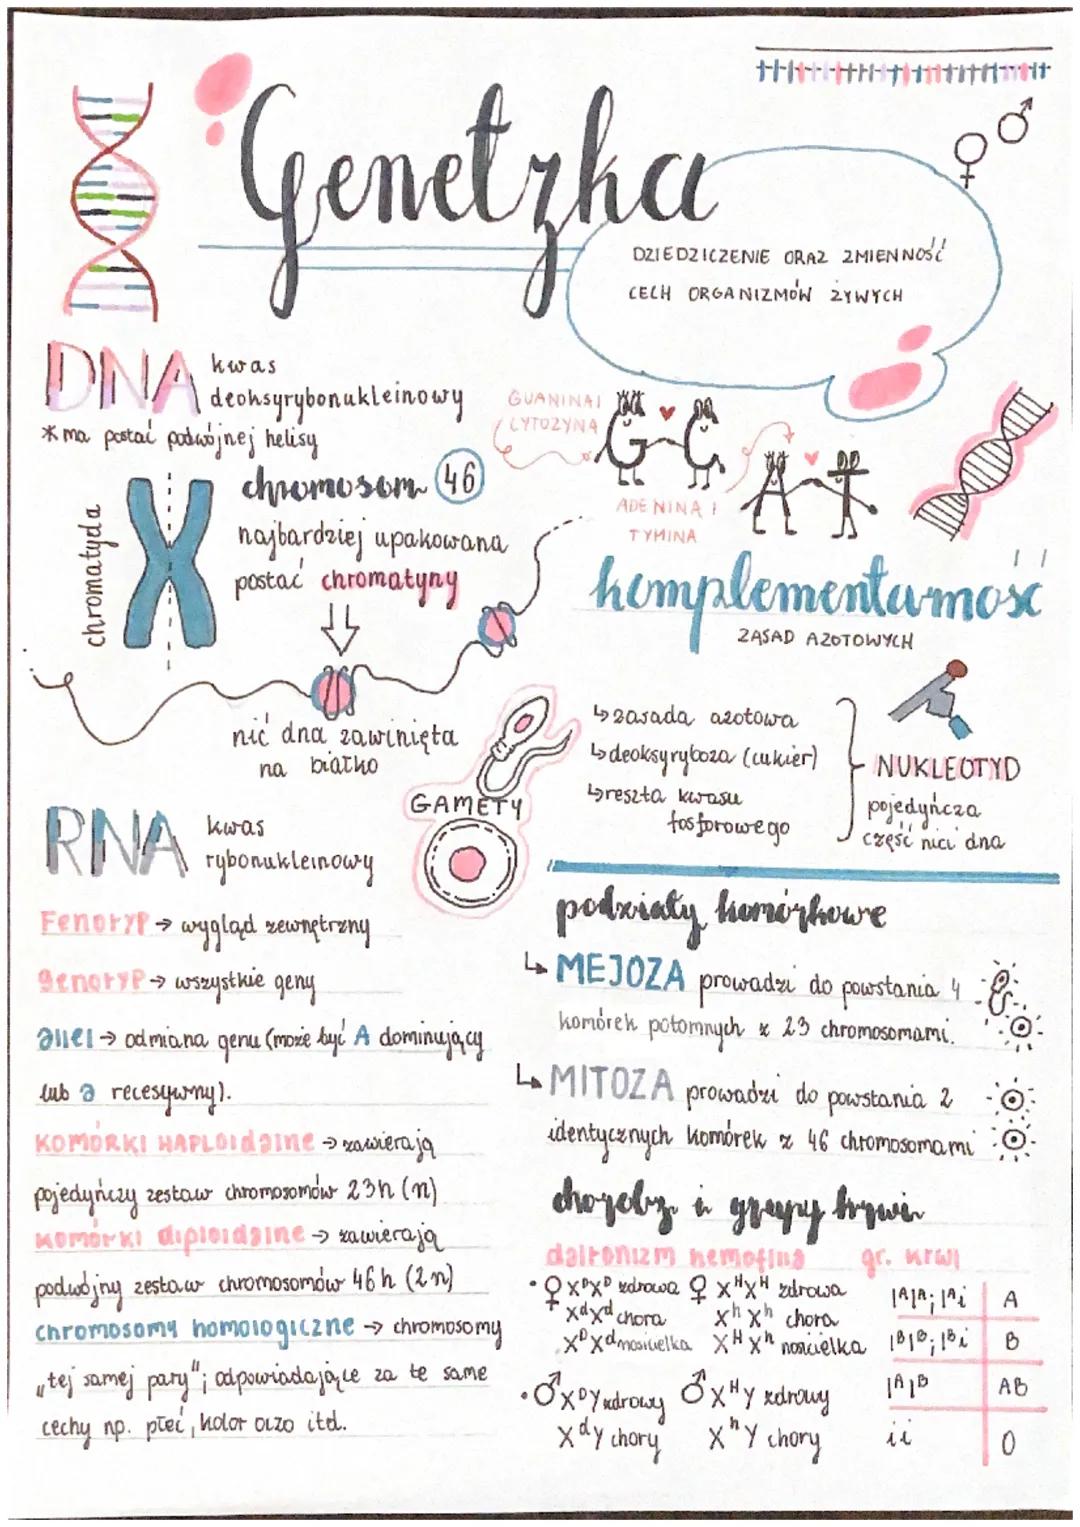 Genetyka
DZIEDZICZENIE ORAZ ZMIENNOŚĆ
CECH ORGANIZMÓW ŻYWYCH
DNA kwas
deoksyrybonukleinowy
* ma postać podwójnej helisy
chromatyda
chromosom 46
najbardziej upakowana
postać chromatyny
nić dna zawinięta
na białko
GUANINA I
CYTOZYNA
G C
ADENINA I
TYMINA
A T
komplementarność
ZASAD AZOTOWYCH
↳ zasada azotowa
↳ deoksyryboza (cukier)
↳ reszta kwasu
fosforowego
NUKLEOTYD
pojedyńcza
część nici dna
GAMETY
RNA kwas
rybonukleinowy
Fenotyp → wygląd zewnętrzny
genotyp → wszystkie geny
allel → odmiana genu (może być A dominujący
lub a recesywny).
KOMÓRKI HAPLOIDALNE → zawierają
pojedyńczy zestaw chromosomów 23h (n)
komórki diploidalne → zawierają
podwójny zestaw chromosomów 46h (2n)
chromosomy homologiczne → chromosomy
„tej samej pary"; odpowiadające za te same
cechy np. płeć, kolor oczo itd.
podziały komórkowe
↳ MEJOZA prowadzi do powstania 4
komórek potomnych z 23 chromosomami.
↳ MITOZA prowadzi do powstania 2
identycznych komórek z 46 chromosomami
choroby i grupy krwi
daltonizm hemofilia gr. krwi
• ♀ XᴰXᴰ zdrowa ♀ XᴴXᴴ zdrowa
XᵈXᵈ chora XʰXʰ chora
XᴰXᵈ nosicielka XᴴXʰ nosicielka
• ♂ XᴰY zdrowy ♂ XᴴY zdrowy
XᵈY chory XʰY chory
IᴬIᴬ; Iᴬi A
IᴮIᴮ; Iᴮi B
IᴬIᴮ AB
ii 0